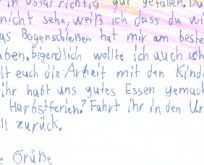 in Uslar richtig gut gefallen. Du
nicht sehe, weiß ich dass du wi
as Bogenschießen hat mir am beste
aben. Eigendlich wollte ich auch sch
lt euch die Arbeit mit den Kinde
ihr habt uns gutes Essen gemach
Herbstferien? Fahrt ihr in den Ur
ll zurück.
e Grüße